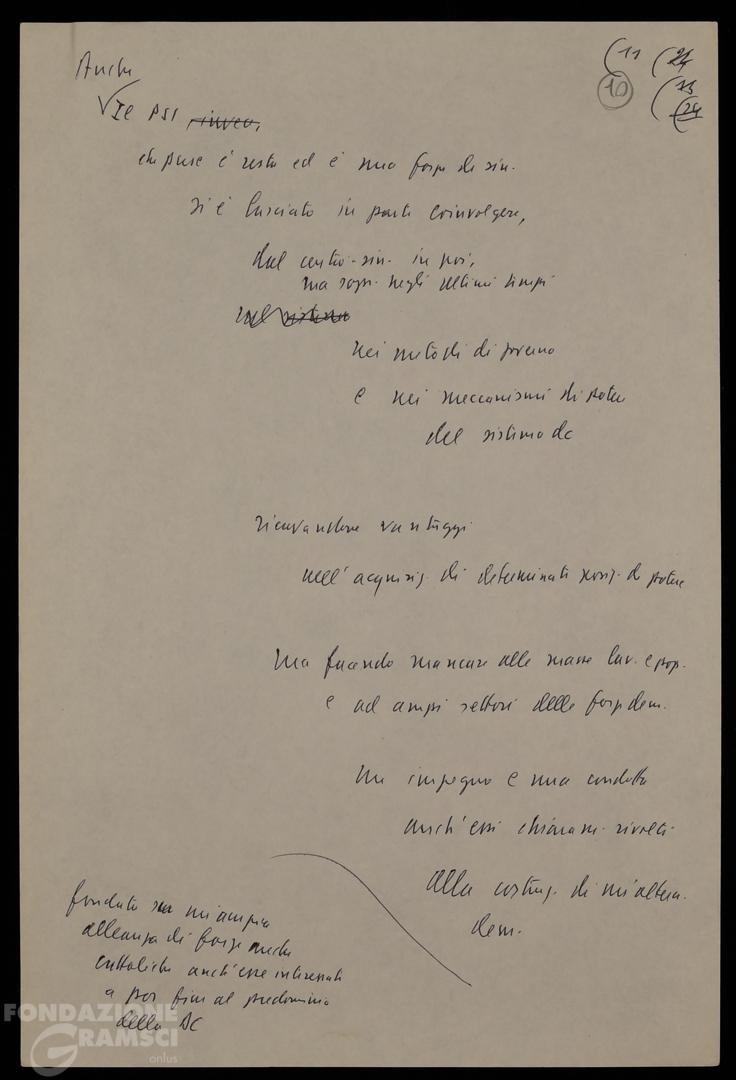 (11 (24
(10) (23
(24
Anche
Il PSI invece,
che pure è resta ed è una forza di sin.
si è lasciato in parte coinvolgere,
dal centro-sin. in poi,
ma sopr. negli ultimi tempi
nel sistema
nei metodi di governo
e nei meccanismi di potere
del sistema dc
ricavandone vantaggi
nell'acquisiz. di determinate posiz. di potere
ma facendo mancare alle masse lav. e pop.
e ad ampi settori delle forze dem.
un impegno e una condotta
anch'essi chiaram. rivolti
alla costruz. di un'altern.
dem.
fondata su un'ampia
alleanza di forze anche
cattoliche anch'esse interessate
a por fine al predominio
della DC
FONDAZIONE
GRAMSCI
onlus